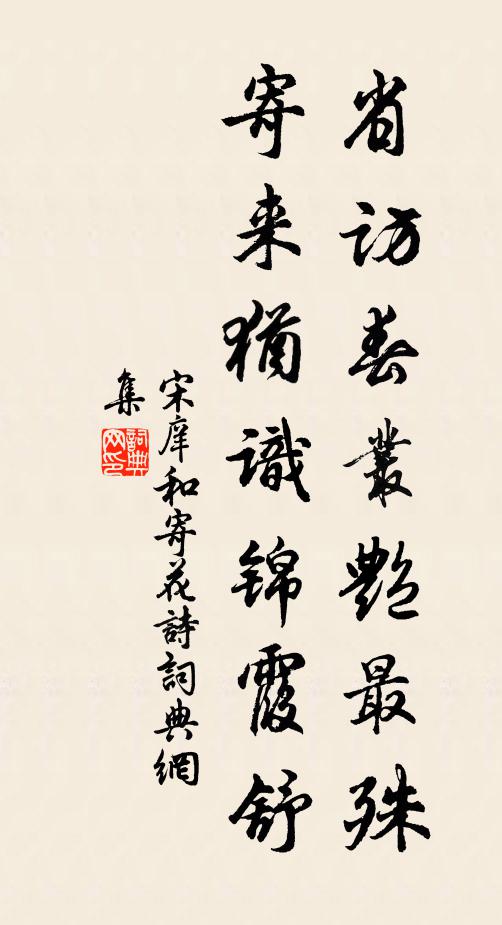 省访春丛艳最殊
寄来犹识锦霞舒
宋庠和寄花诗词典网
集
词典
网印